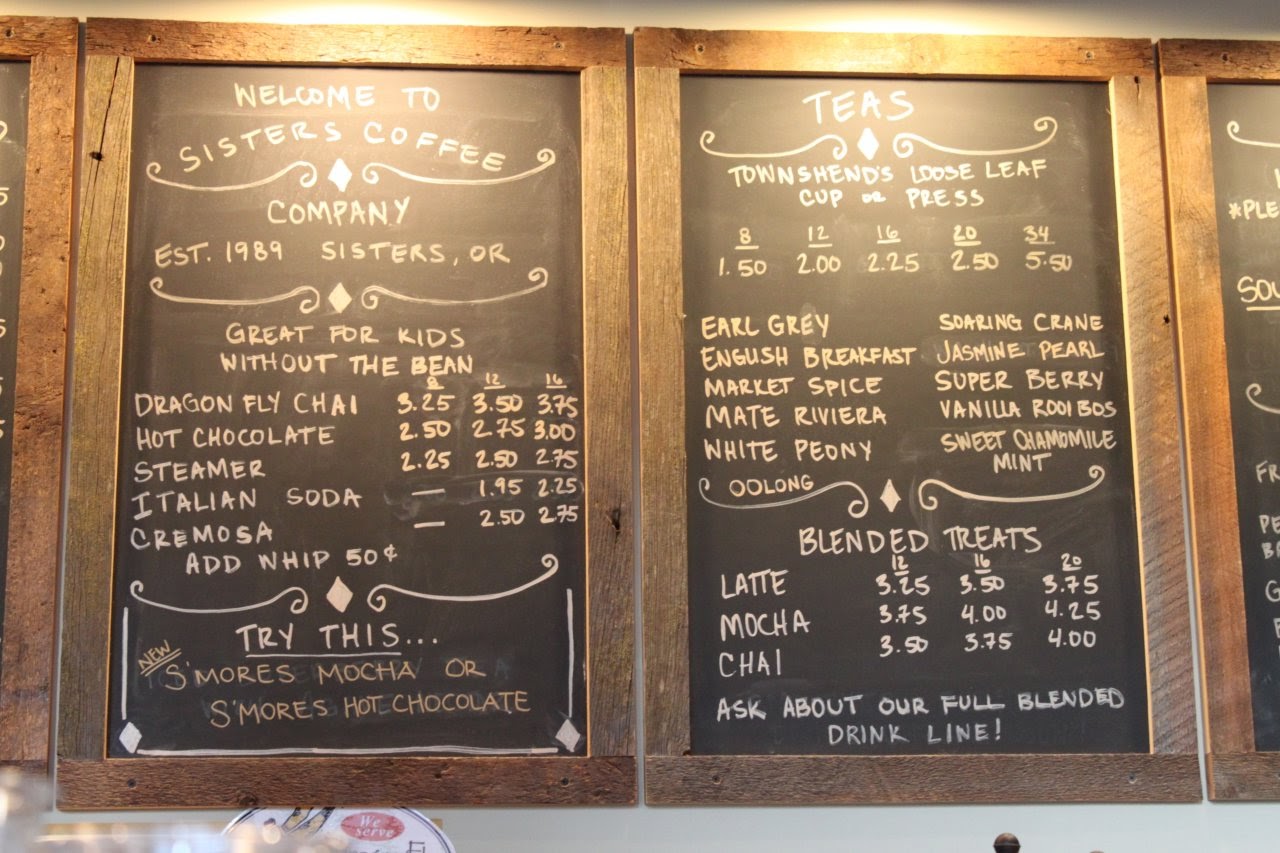 WELCOME TO
SISTERS COFFEE
COMPANY
EST. 1989 SISTERS, OR
GREAT FOR KIDS
WITHOUT THE BEAN
8 12 16
DRAGON FLY CHAI 3.25 3.50 3.75
HOT CHOCOLATE 2.50 2.75 3.00
STEAMER 2.25 2.50 2.75
ITALIAN SODA — 1.95 2.25
CREMOSA — 2.50 2.75
ADD WHIP 50¢
TRY THIS...
NEW
S'MORES MOCHA OR
S'MORES HOT CHOCOLATE
We
serve
TEAS
TOWNSHEND'S LOOSE LEAF
CUP OR PRESS
8 12 16 20 34
1.50 2.00 2.25 2.50 5.50
EARL GREY SOARING CRANE
ENGLISH BREAKFAST JASMINE PEARL
MARKET SPICE SUPER BERRY
MATE RIVIERA VANILLA ROOIBOS
WHITE PEONY SWEET CHAMOMILE
MINT
OOLONG
BLENDED TREATS
12 16 20
LATTE 3.25 3.50 3.75
MOCHA 3.75 4.00 4.25
CHAI 3.50 3.75 4.00
ASK ABOUT OUR FULL BLENDED
DRINK LINE!
*PLE
SOU
FR